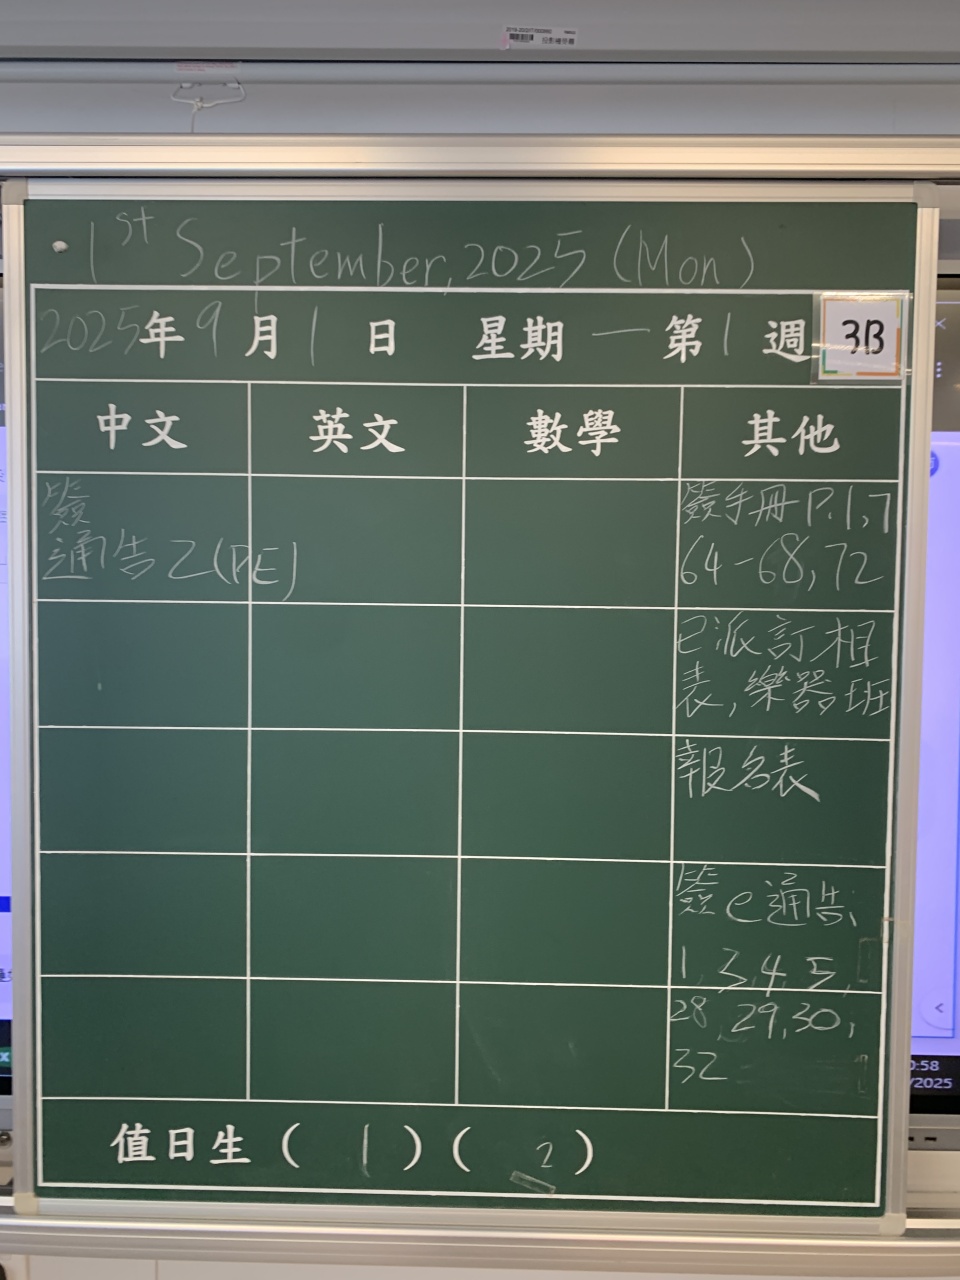 1st September, 2025 (Mon)
2025年9月1日 星期一第1週 3B
中文 英文 數學 其他
簽
通告2(PE)
簽手冊P.1,7
64-68,72
已派訂相
表,樂器班
報名表
簽e通告
1,3,4,5,
28,29,30,
32
值日生(1)(2)
:58
/2025